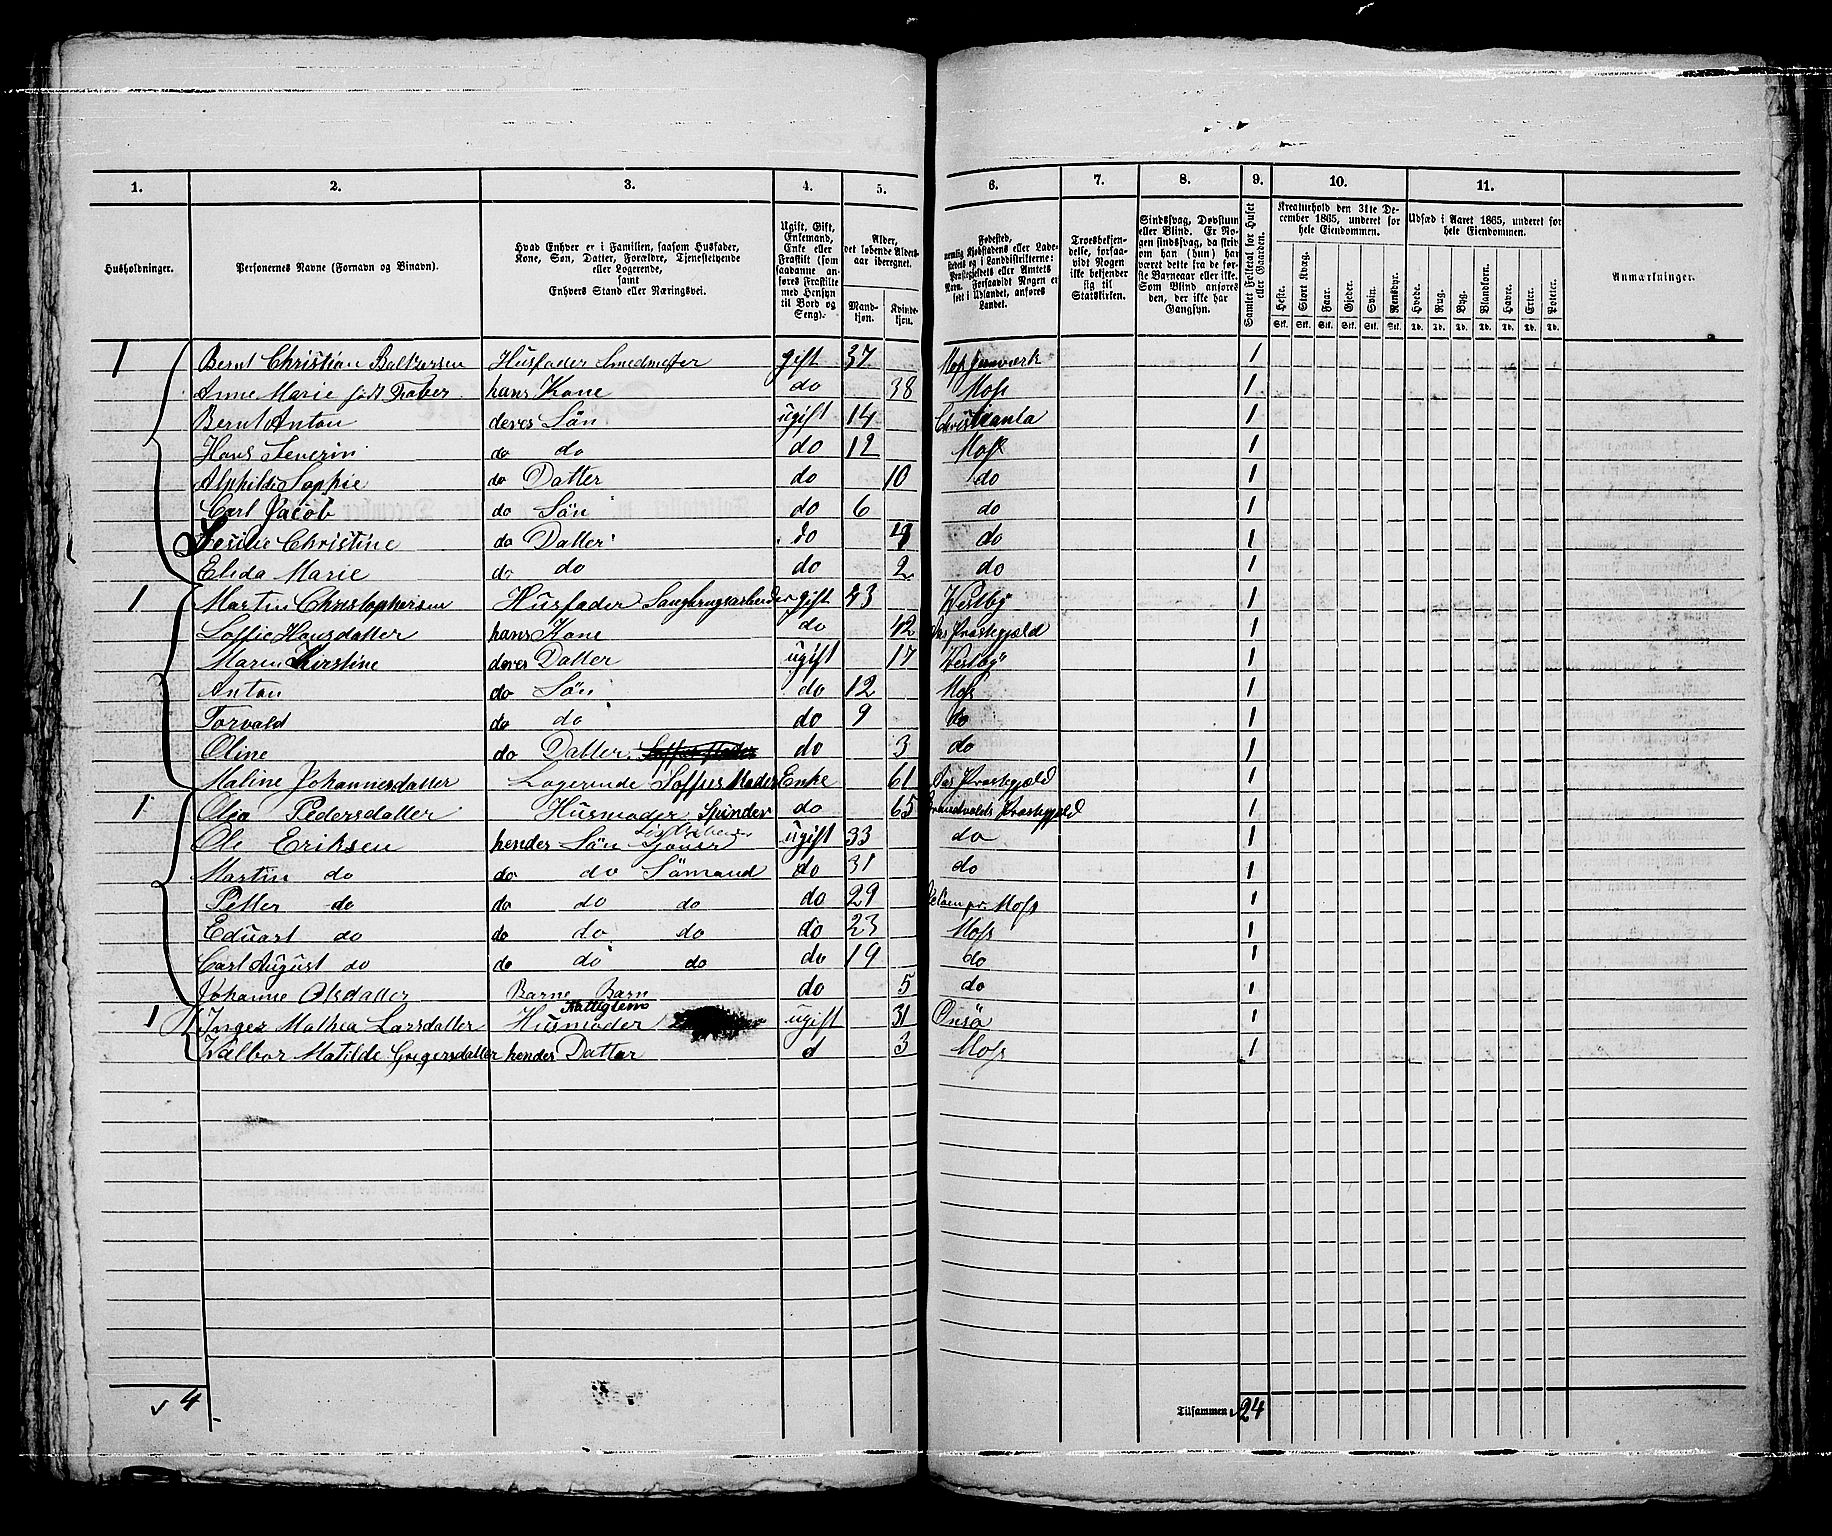 1. 2. 3. 4. 5. 6. 7. 8. 9. 10. 11.
Husholdninger.
Personernes Navne (Fornavn og Binavn).
Hvad Enhver er i Familien, saasom Husfader,
Kone, Søn, Datter, Forældre, Tjenestetyende
eller Logerende,
samt
Enhvers Stand eller Næringsvei.
Ugift, Gift,
Enkemand,
Enke eller
Fraskilt (som
saadanne an-
føres Fraskilte
med Hensyn
til Bord og
Seng).
Alder,
det løbende Alders-
aar iberegnet.
Mand-
kjøn.
Kvinde-
kjøn.
Fødested,
nemlig Kjøbstadens eller Lade-
stedets og i Landdistrikterne:
Præstegjeldets eller Amtets
Navn. Forsaavidt Nogen er
født i Udlandet, anføres
Landet.
Troesbekjen-
delse, forsaa-
vidt Nogen
ikke bekjender
sig til
Statskirken.
Sindssvag, Døvstum
eller Blind. Er No-
gen sindssvag, da skriv
om han (hun) har
været dette fra de før-
ste Barneaar eller ikke.
Som Blind anføres
den, der ikke har
Gangsyn.
Samlet Folketal for Huset
eller Gaarden.
Kreaturhold den 31te De-
cember 1865, underet for
hele Eiendommen.
Heste. Stort Kvæg. Faar. Gjeder. Svin. Rensdyr.
Stk. Stk. Stk. Stk. Stk. Stk.
Udsæd i Aaret 1865, underet for
hele Eiendommen.
Hvede. Rug. Byg. Blandkorn. Havre. Erter. Poteter.
Td. Td. Td. Td. Td. Td. Td.
Anmærkninger.
1 Bernt Christian Baltzersen Husfader Smedmester gift 37 Moss Jernværk 1
Anne Marie født Faber hans Kone do 38 Moss 1
Bernt Anton deres Sön ugift 14 Christiania 1
Hans Severin do do do 12 Moss 1
Alphilde Sophie do Datter do 10 do 1
Carl Jacob do Sön do 6 do 1
Christine do Datter do 4 do 1
Elida Marie do do do 2 do 1
1 Martin Christophersen Husfader Saugbrugsarbeider gift 43 Vestby 1
Soffie Hansdatter hans Kone do 42 Aas Præstegjæld 1
Maren Kirstine deres Datter ugift 17 Vestby 1
Anton do Sön do 12 Moss 1
Torvald do do do 9 do 1
Oline do Datter do 3 do 1
Maline Johannesdatter Logerende Soffies Moder Enke 61 Aas Præstegjæld 1
1 Olea Pedersdatter Husmoder Spinder do 65 Præstegjæld 1
Ole Eriksen hendes Sön ugift 33 do 1
Martin do do do Sömand do 31 do 1
Petter do do do do do 29 pr. Moss 1
Eduart do do do do do 23 Moss 1
Carl August do do do do do 19 do 1
Johanne Olsdatter Barne Barn do 5 do 1
Fattiglem
1 Inger Mathea Larsdatter Husmoder ugift 31 Onsö 1
Valbor Matilde Gregersdatter hendes Datter d 3 Moss 1
4
Tilsammen 24